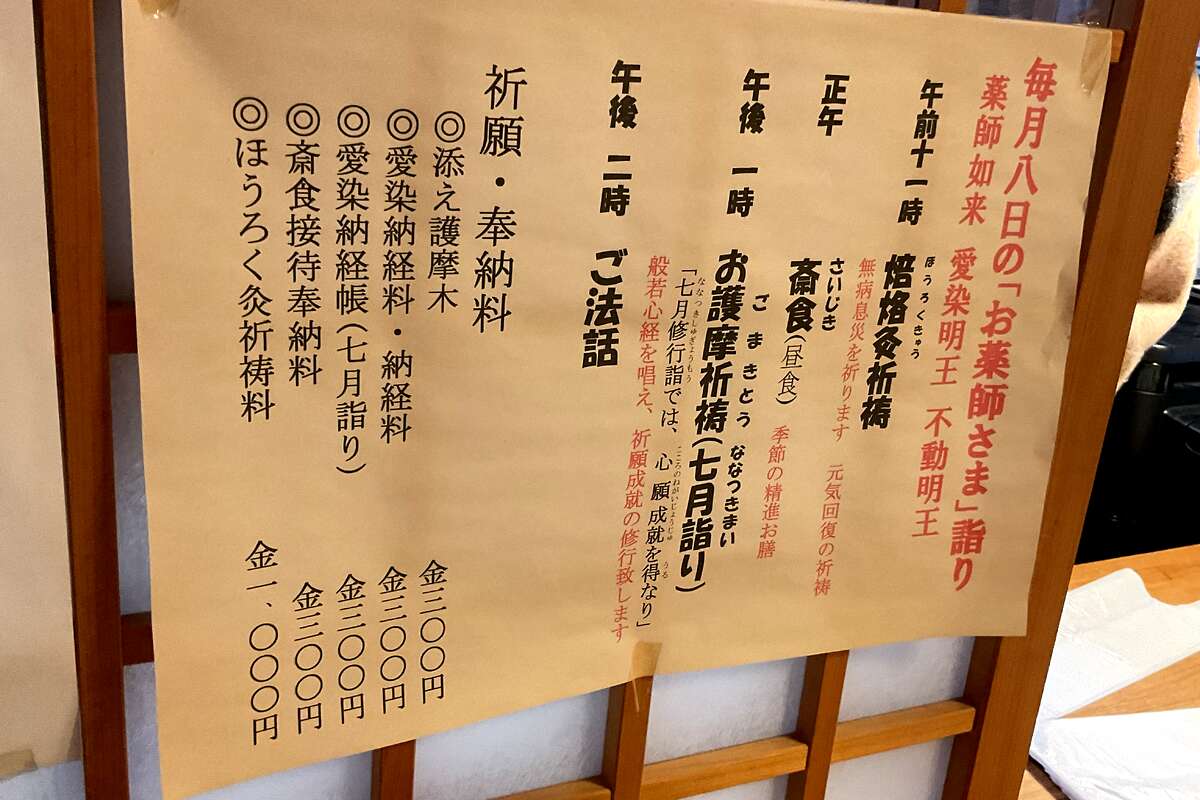 毎月八日の「お薬師さま」詣り
薬師如来 愛染明王 不動明王
午前十一時 焙烙灸祈祷
ほうろくきゅう
無病息災を祈ります 元気回復の祈祷
正午 斎食(昼食) 季節の精進お膳
さいじき
午後 一時 お護摩祈祷(七月詣り)
ごまきとう ななつきまい
「七月修行詣では、心願成就を得なり」
ななつきしゅぎょうもう こころのねがいじょうじゅ うる
般若心経を唱え、祈願成就の修行致します
午後 二時 ご法話
祈願・奉納料
◎添え護摩木 金三〇〇円
◎愛染納経料・納経料 金三〇〇円
◎愛染納経帳(七月詣り) 金三〇〇円
◎斎食接待奉納料 金三〇〇円
◎ほうろく灸祈祷料 金一、〇〇〇円